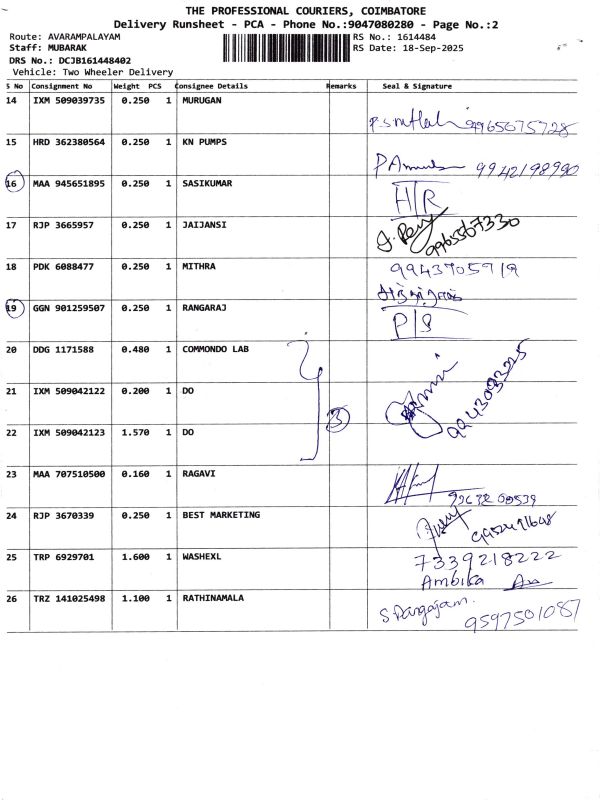 THE PROFESSIONAL COURIERS, COIMBATORE
Delivery Runsheet - PCA - Phone No.:9047080280 - Page No.:2
Route: AVARAMPALAYAM RS No.: 1614484
Staff: MUBARAK RS Date: 18-Sep-2025
DRS No.: DCJB161448402
Vehicle: Two Wheeler Delivery
S No Consignment No Weight PCS Consignee Details Remarks Seal & Signature
14 IXM 509039735 0.250 1 MURUGAN
9965675728
15 HRD 362380564 0.250 1 KN PUMPS
9942198990
16 MAA 945651895 0.250 1 SASIKUMAR
H/R
17 RJP 3665957 0.250 1 JAIJANSI
9965567330
18 PDK 6088477 0.250 1 MITHRA
19 GGN 901259507 0.250 1 RANGARAJ
P/S
20 DDG 1171588 0.480 1 COMMONDO LAB
21 IXM 509042122 0.200 1 DO
3
22 IXM 509042123 1.570 1 DO
23 MAA 707510500 0.160 1 RAGAVI
24 RJP 3670339 0.250 1 BEST MARKETING
25 TRP 6929701 1.600 1 WASHEXL
7339218222
Ambika
26 TRZ 141025498 1.100 1 RATHINAMALA
9597501087